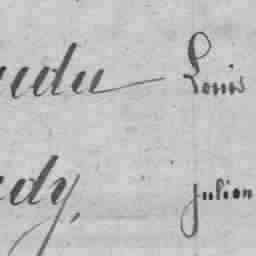 udu Louis
edy, julien